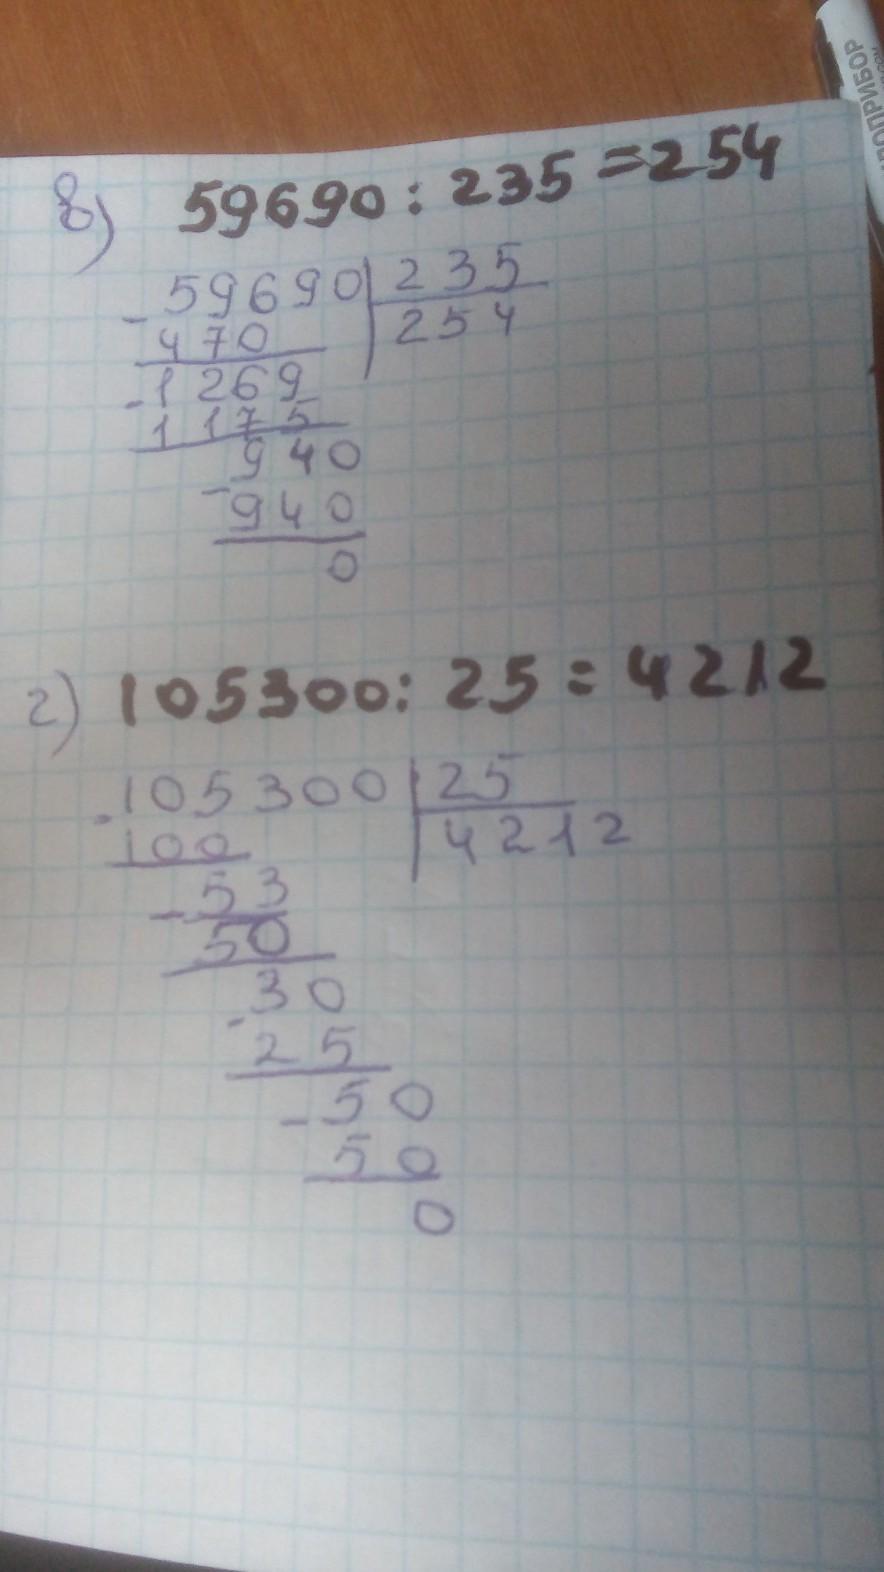 в) 59690 : 235 = 254
- 59690 | 235
470 | 254
- 1269
1175
- 940
940
0
г) 105300 : 25 = 4212
- 105300 | 25
100 | 4212
- 53
50
- 30
25
- 50
50
0